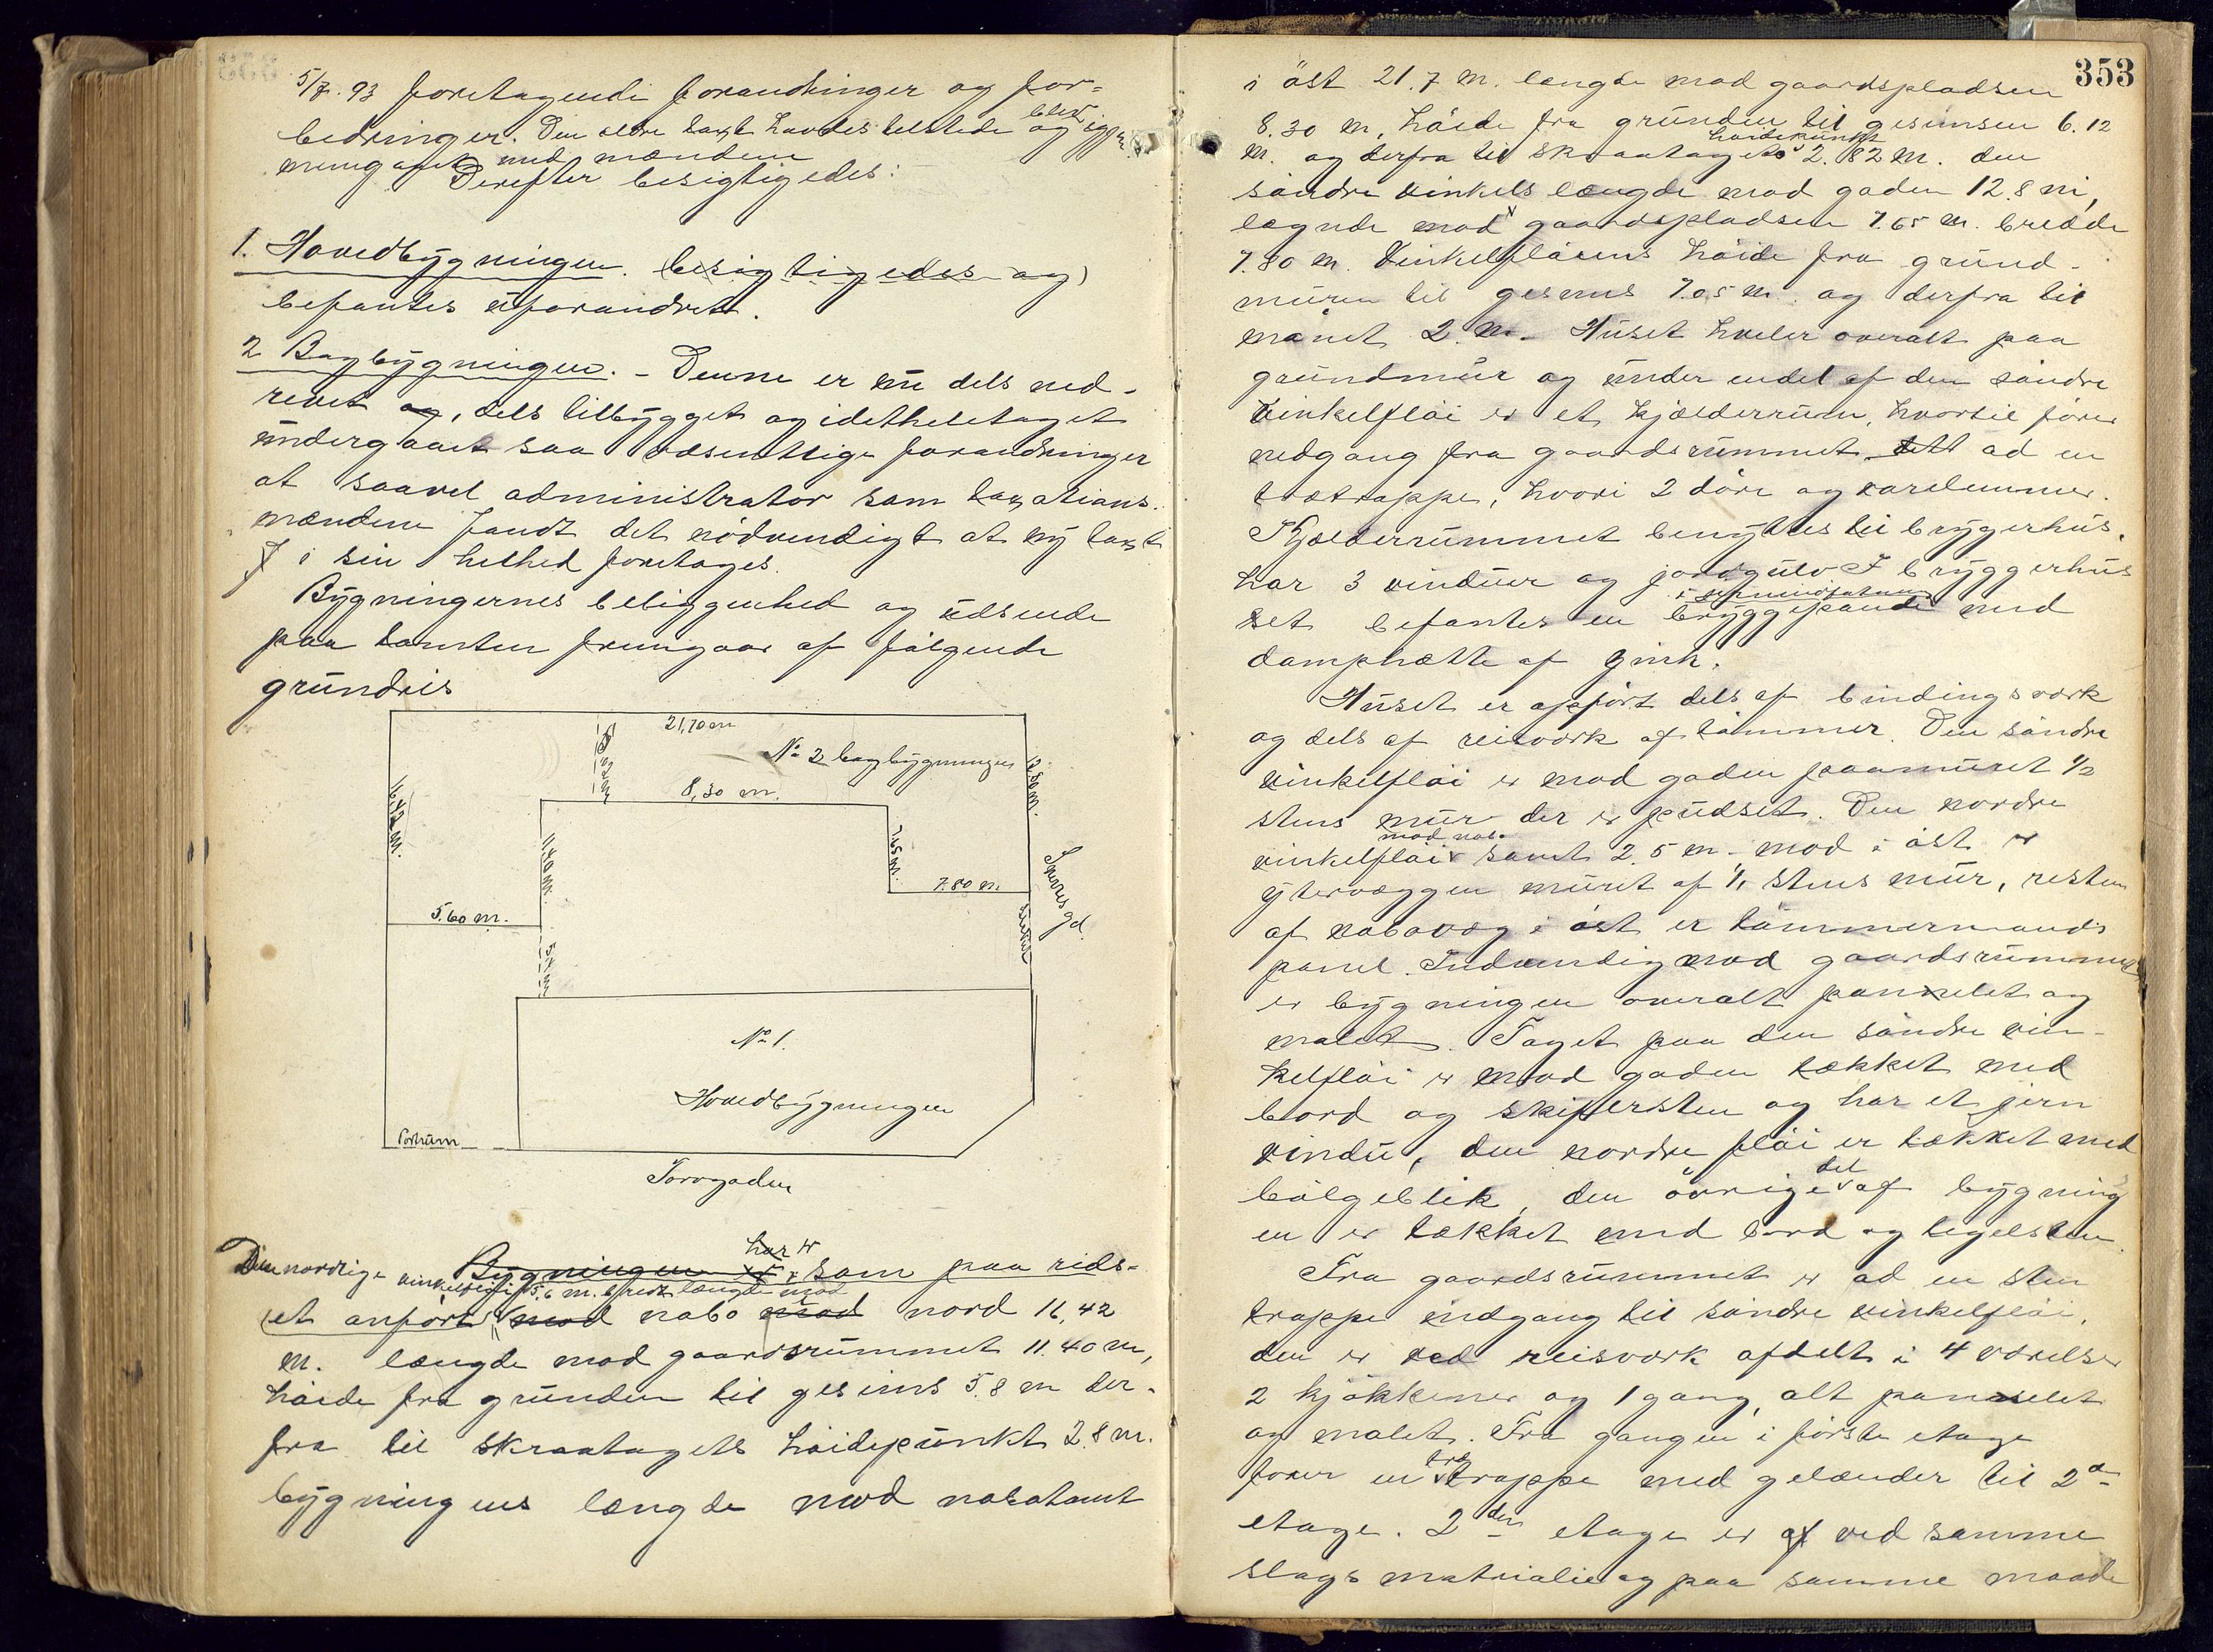 5/7. 93 foretagende forandringer og for=
bedringer. Den ældre taxt havdes tilstede og blev
med mændene
Derefter besigtigedes:
1. Hovedbygningen. (besigtigedes og)
befantes uforandret.
2 Bagbygningen. - Denne er nu dels ned-
revet og, dels tilbygget og idetheletaget
undergaaet saa væsentlige forandringer
at saavel administrator som taxations-
mændene fandt det nödvendigt at ny taxt
i sin helhed foretages.
Bygningernes beliggenhed og udseende
paa tomten fremgaar af fölgende
grundris
21,70 m
No 2 bagbygningen
12,80 m.
16,42 m.
8,30 m.
11,40 m.
7.65 m.
7.80 m.
5.60 m.
Smries gd.
No 1.
Hovedbygningen
Portrum
Torvgaden
Den nordlige vinkelflöi Bygningen har er som paa rids-
et anfört 5.6 m. bred længde mod nabo mod nord 16,42
m. længde mod gaardsrummet 11.40 m,
höide fra grunden til gesims 5.8 m der-
fra til skraatagets höidepunkt 2.8 m.
bygningens længde mod nabotomt
353
i öst 21.7 m. længde mod gaardspladsen
8.30 m, höide fra grunden til gesimsen 6.12
m. og derfra til skraatagets höidepunkt 2.82 m. den
söndre vinkels længde mod gaden 12.8 m,
længde mod gaardspladsen 7.65 m. bredde
7.80 m. Vinkelflöiens höide fra grund-
muren til gesims 7.05 m. og derfra til
mönet 2 m. Huset hviler overalt paa
grundmur og under endel af den söndre
vinkelflöi er et kjælderrum, hvortil förer
nedgang fra gaardsrummet ad en
trætrappe, hvori 2 döre og karelemmer.
Kjælderrummet benyttes til bryggerhus,
har 3 vinduer og jordgulv I bryggerhus
et befantes en bryggepande med
damphætte af zink.
Huset er opfört dels af bindingsværk
og dels af reisværk af tömmer. Den söndre
vinkelflöi er mod gaden paamuret 1/2
stens mur der er pudset. Den nordre
vinkelflöi mod nabo samt 2.5 m. mod i öst er
ydervæggen muret af 1/1 stens mur, resten
af nabovæg i öst er tömmermands
panel. Indvendig mod gaardsrummet
er bygningen overalt panelet og
malet. Taget paa den söndre vin-
kelflöi er mod gaden tækket med
bord og skifersten og har et jern
vindu, den nordre flöi er tækket med
bölgeblik, den övrige del af bygning
en er tækket med bord og teglsten.
Fra gaardsrummet er ad en sten
trappe indgang til söndre vinkelflöi,
den er ved reisværk afdelt i 4 værelser
2 kjökkener og 1 gang, alt panelet
og malet. Fra gangen i förste etage
förer en træ trappe med gelænder til 2a
etage. 2den etage er af ved samme
slags matrialie og paa samme maade